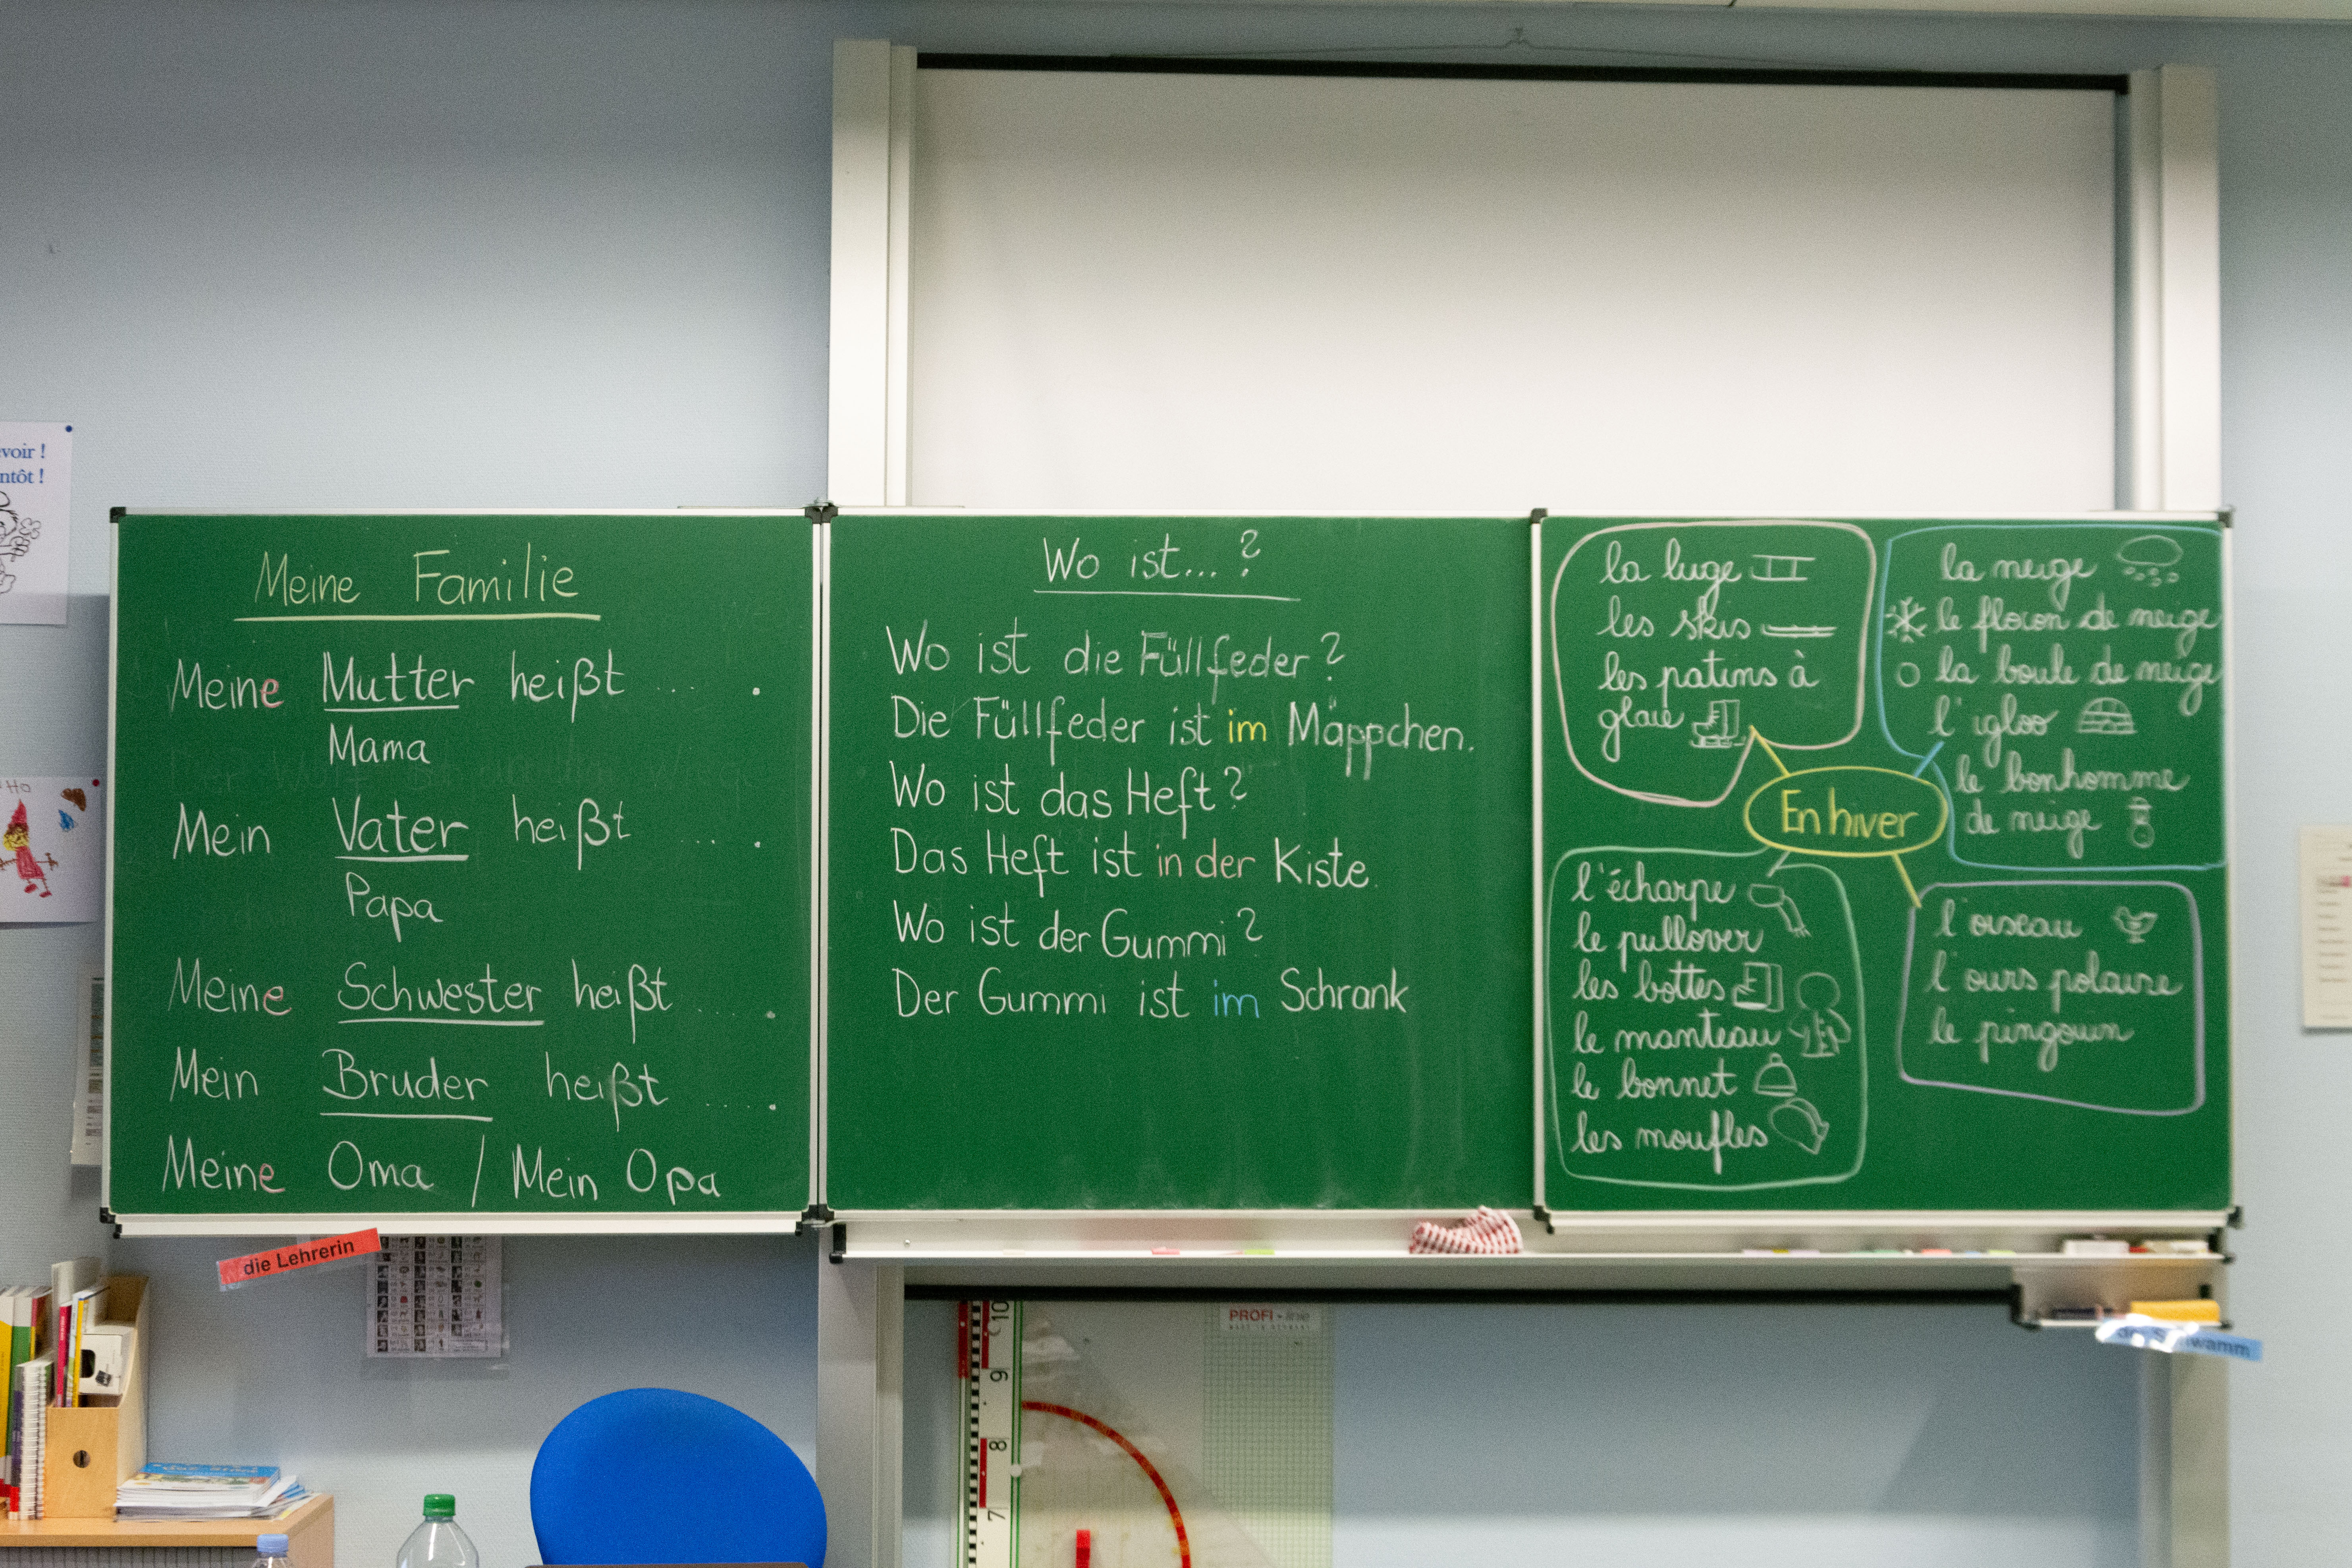 voir !
ntôt !
HO
Meine Familie
Meine Mutter heißt ... .
Mama
Mein Vater heißt ... .
Papa
Meine Schwester heißt ..... .
Mein Bruder heißt ..... .
Meine Oma / Mein Opa
Wo ist...?
Wo ist die Füllfeder?
Die Füllfeder ist im Mäppchen.
Wo ist das Heft?
Das Heft ist in der Kiste.
Wo ist der Gummi?
Der Gummi ist im Schrank
la luge
les skis
les patins à
glace
la neige
le flocon de neige
la boule de neige
l'igloo
le bonhomme
de neige
En hiver
l'écharpe
le pullover
les bottes
le manteau
le bonnet
les moufles
l'oiseau
l'ours polaire
le pingouin
die Lehrerin
PROFI-linie
MADE IN GERMANY
10
9
8
7
wamm